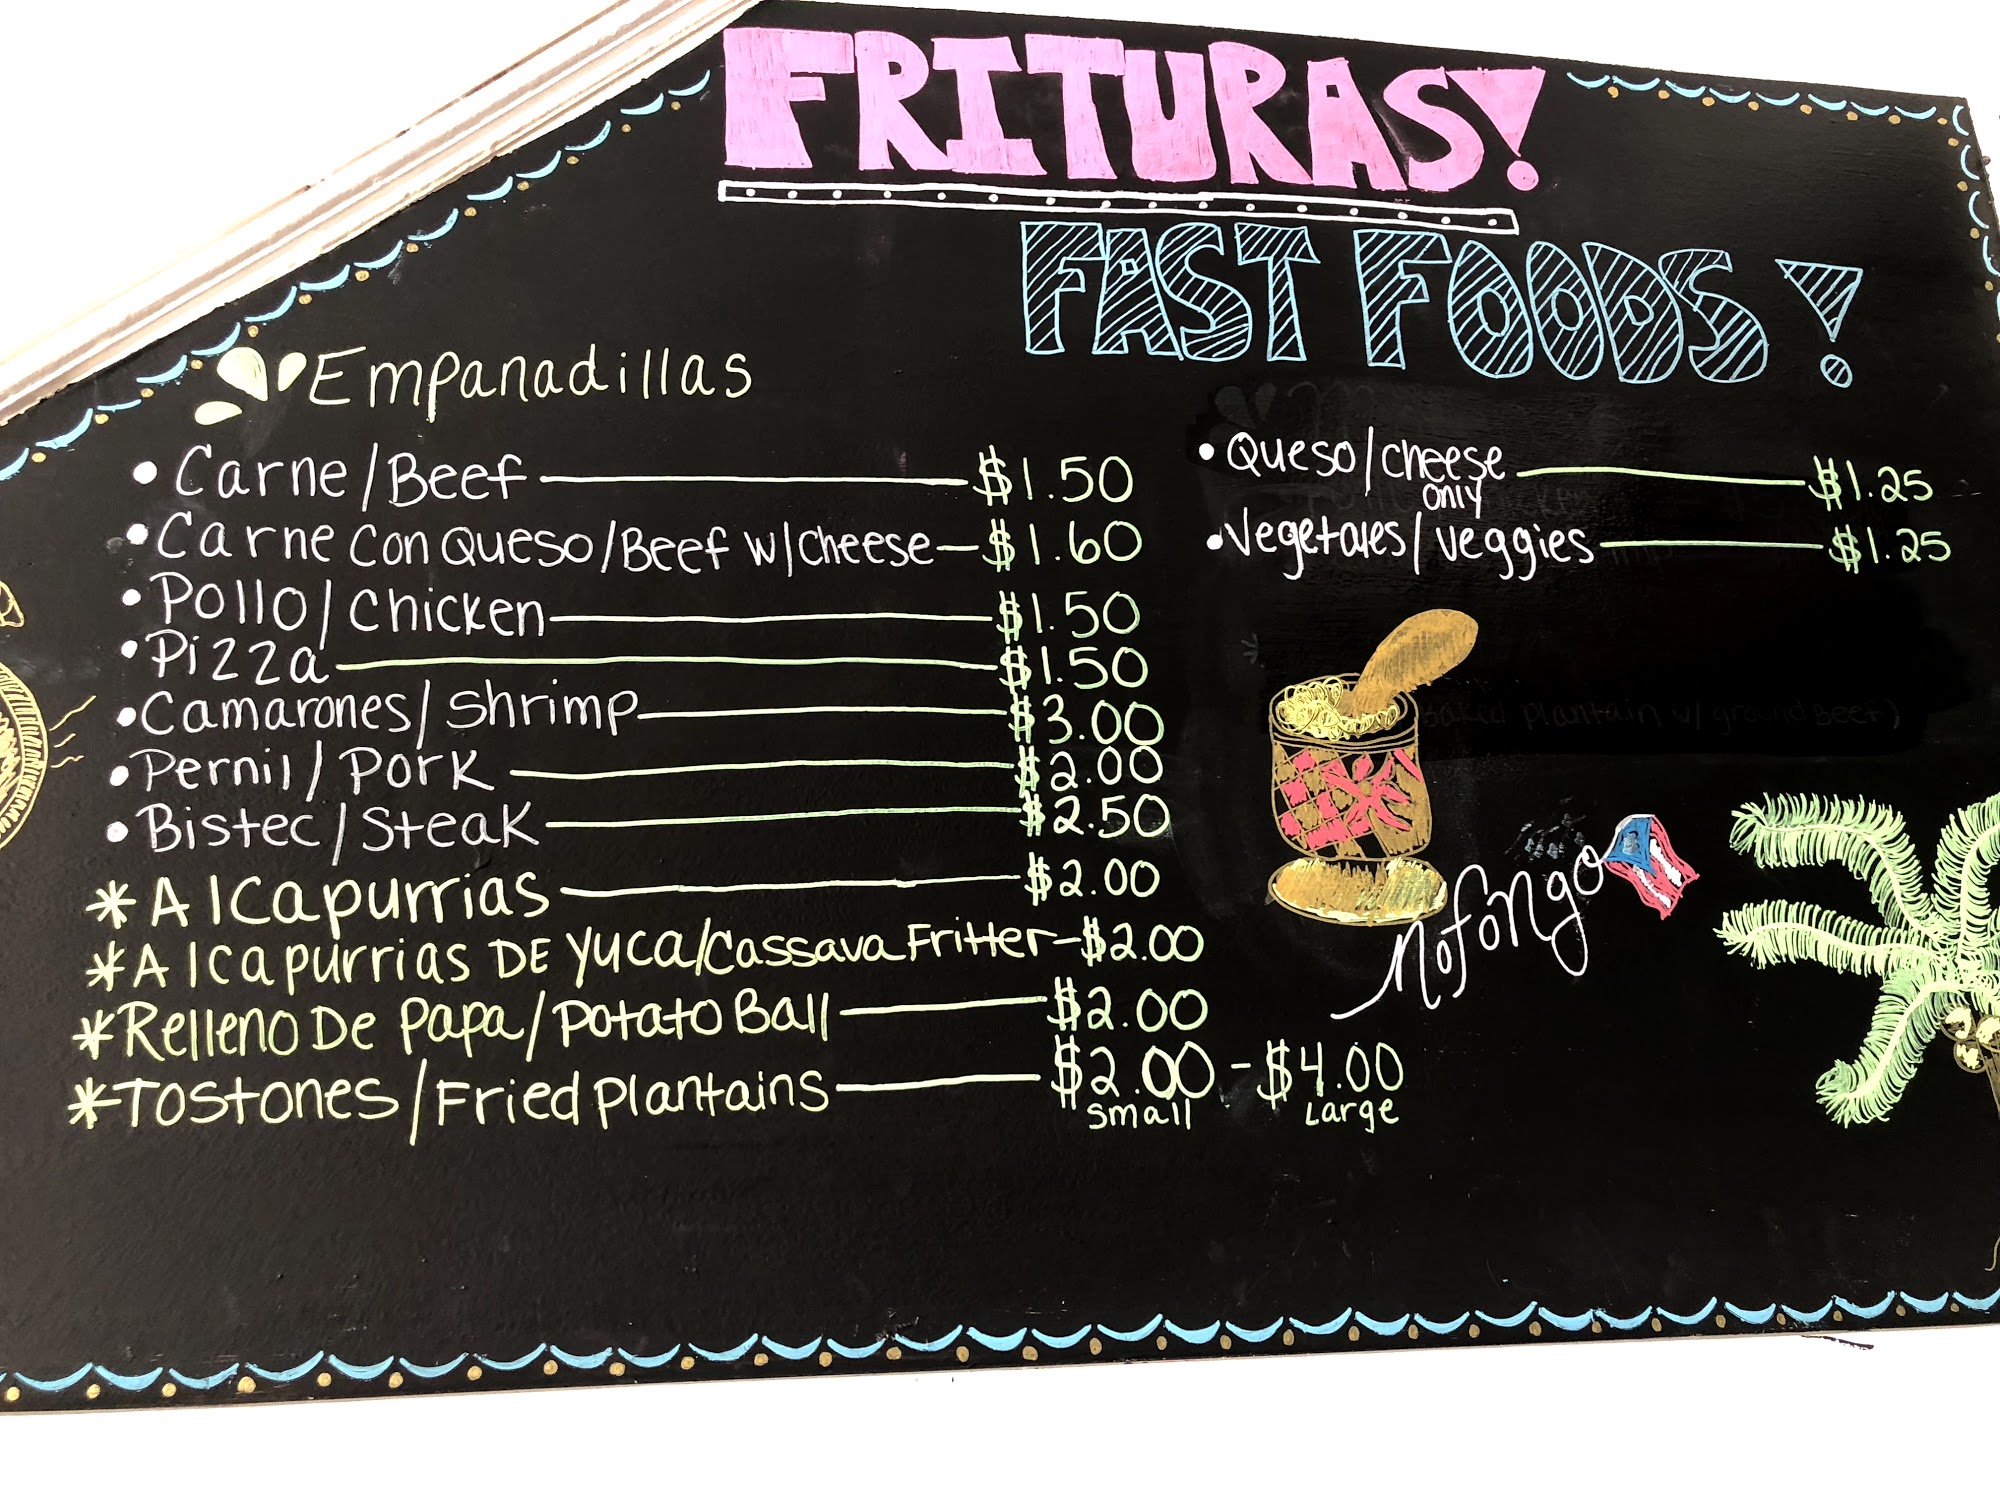 FRITURAS!
FAST FOODS!
Empanadillas
• Carne/Beef $1.50
• Carne con Queso/Beef w/cheese $1.60
• Pollo/Chicken $1.50
• Pizza $1.50
• Camarones/Shrimp $3.00
• Pernil/Pork $2.00
• Bistec/Steak $2.50
* Alcapurrias $2.00
* Alcapurrias DE Yuca/Cassava Fritter $2.00
* Relleno De Papa/Potato Ball $2.00
* Tostones/Fried Plantains $2.00 - $4.00
Small Large
• Queso/cheese $1.25
only
• Vegetales/Veggies $1.25
baked plantain w/ground Beef)
Mofongo